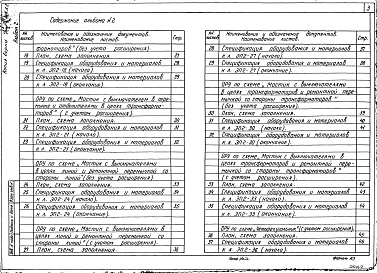 3
Содержание альбома №2
№ листов
Наименование и обозначение документов. Наименование листов.
Стр.
форматоров" (без учета расширения).
18 План, схема заполнения. 27
19 Спецификация оборудования и материалов 28
к л. ЭП2-18 (начало).
20 Спецификация оборудования и материалов 29
к л. ЭП2-18 (окончание)
ОРУ по схеме „Мостик с выключателем в пере-
мычке и отделителями в цепях трансформа-
торов" (с учетом расширения).
21 План, схема заполнения. 30
22 Спецификация оборудования и материалов 31
к л. ЭП2-21 (начало)
23 Спецификация оборудования и материалов 32
к л. ЭП2-21 (окончание).
ОРУ по схеме „Мостик с выключателями
в цепях линий и ремонтной перемычкой со
стороны линий" (без учета расширения).
24 План, схема заполнения. 33
25 Спецификация оборудования и материалов 34
к л. ЭП2-24 (начало).
26 Спецификация оборудования и материалов 35
к л. ЭП2-24 (окончание).
ОРУ по схеме „Мостик с выключателями в
цепях линий и ремонтной перемычкой со сто-
роны линий" (с учетом расширения).
27 План, схема заполнения 36
№ листов
Наименование и обозначение документов. Наименование листов.
Стр.
28 Спецификация оборудования и материалов
к л. ЭП2-27 (начало).
29 Спецификация оборудования и материалов
к л. ЭП2-27 (окончание).
ОРУ по схеме „Мостик с выключателями
в цепях трансформаторов и ремонтной пере-
мычкой со стороны трансформаторов"
(без учета расширения).
30 План, схема заполнения. 39
31 Спецификация оборудования и материалов 40
к л. ЭП2-30 (начало).
32 Спецификация оборудования и материалов 41
к л. ЭП2-30 (окончание).
ОРУ по схеме „Мостик с выключателями в
цепях трансформаторов и ремонтной перемыч-
кой со стороны трансформаторов"
(с учетом расширения).
33 План, схема заполнения. 42
34 Спецификация оборудования и материалов 43
к л. ЭП2-33 (начало).
35 Спецификация оборудования и материалов 44
к л. ЭП2-33 (окончание).
ОРУ по схеме „Четырехугольник" (с учетом расширения).
36 План, схема заполнения. 45
37 Спецификация оборудования и материалов 46
к л. ЭП2-36 (начало)
Формат А3